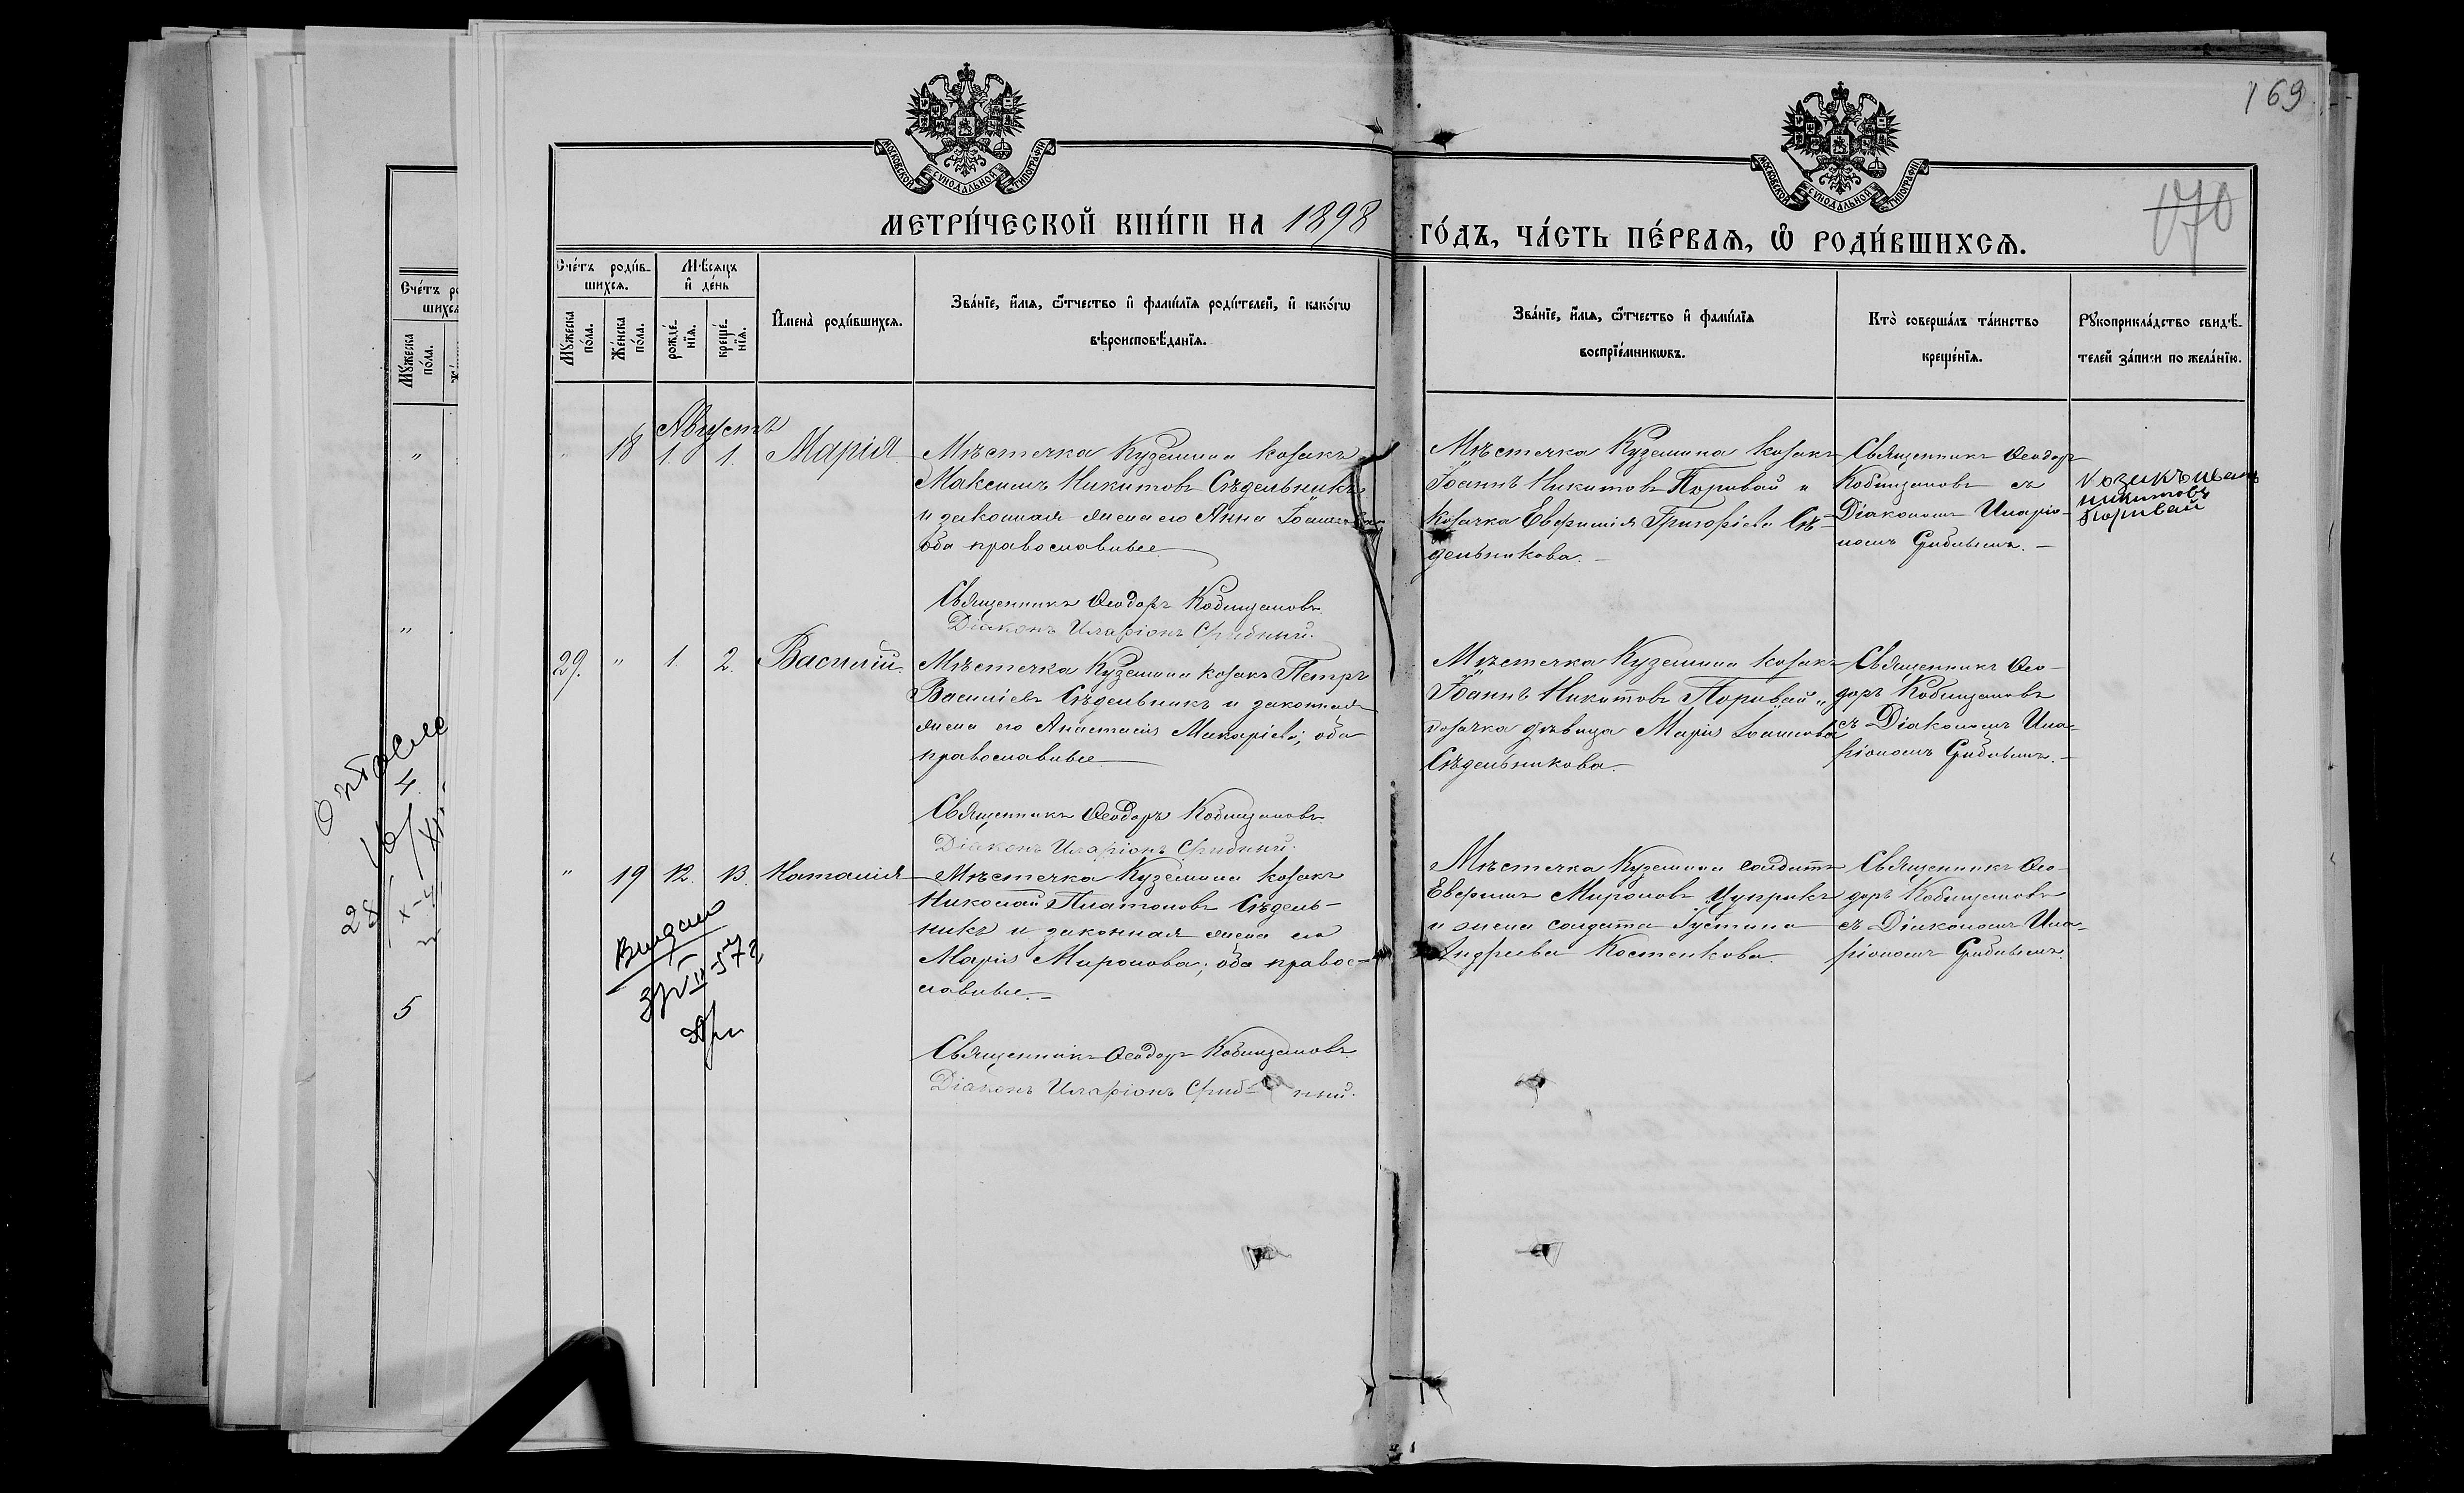 169
170
МОСКОВСКОЙ СѴНОДАЛЬНОЙ ТИПОГРАФІИ
МОСКОВСКОЙ СѴНОДАЛЬНОЙ ТИПОГРАФІИ
МЕТРИ́ЧЕСКОЙ КНИ́ГИ НА 1898 ГО́ДЪ, ЧА́СТЬ ПЕ́РВАѦ, Ѡ҆ РОДИ́ВШИХСѦ.
Сче́тъ роди́вшихсѧ.
Мꙋ́жеска по́ла.
Же́нска по́ла.
Мѣ́сѧцъ и҆ де́нь
рожде́нїѧ.
креще́нїѧ.
И҆мена̀ роди́вшихсѧ.
Зва́нїе, и҆́мѧ, ѻ҆́тчество и҆ фами́лїѧ роди́телей, и҆ како́гѡ
вѣроисповѣ́данїѧ.
Зва́нїе, и҆́мѧ, ѻ҆́тчество и҆ фами́лїѧ
воспрїе́мникѡвъ.
Кто̀ соверша́лъ та́инство
креще́нїѧ.
Рꙋкоприкла́дство свидѣ́-
телей за́писи по жела́нїю.
Августъ
" 18 1. 1. Марія
Мѣстечка Куземина козакъ
Максимъ Никитовъ Сѣдельникъ
и законная жена его Анна Іоаннова
оба православные
Священникъ Ѳеодоръ Кобищановъ
Діаконъ Иларіонъ Срибный.
Мѣстечка Куземина козакъ
Іоаннъ Никитовъ Поривай и
козачка Евфимія Григоріева Сѣ-
дельникова.
Священникъ Ѳеодоръ
Кобищановъ съ
Діакономъ Иларіо-
номъ Срибнымъ.
козакъ Иванъ
Никитовъ
Поривай
29. " 1. 2. Василій
Мѣстечка Куземина козакъ Петръ
Василіевъ Сѣдельникъ и законная
жена его Анастасія Макаріева; оба
православные
Священникъ Ѳеодоръ Кобищановъ
Діаконъ Иларіонъ Срибный.
Мѣстечка Куземина козакъ
Іоаннъ Никитовъ Поривай и
козачка дѣвица Марія Іоаннова
Сѣдельникова.
Священникъ Ѳео-
доръ Кобищановъ
съ Діакономъ Ила-
ріономъ Срибнымъ.
" 19 12. 13. Наталія
Мѣстечка Куземина козакъ
Николай Платоновъ Сѣдель-
никъ и законная жена его
Марія Миронова; оба правос-
лавные.
Священникъ Ѳеодоръ Кобищановъ
Діаконъ Иларіонъ Срибный.
Мѣстечка Куземина солдатъ
Евфимъ Мироновъ Цуприкъ
и жена солдата Іустина
Андреева Костенкова
Священникъ Ѳео-
доръ Кобищановъ
съ Діакономъ Ила-
ріономъ Срибнымъ.
Видано
Сче́тъ
Мꙋ́жеска по́ла.
28
5